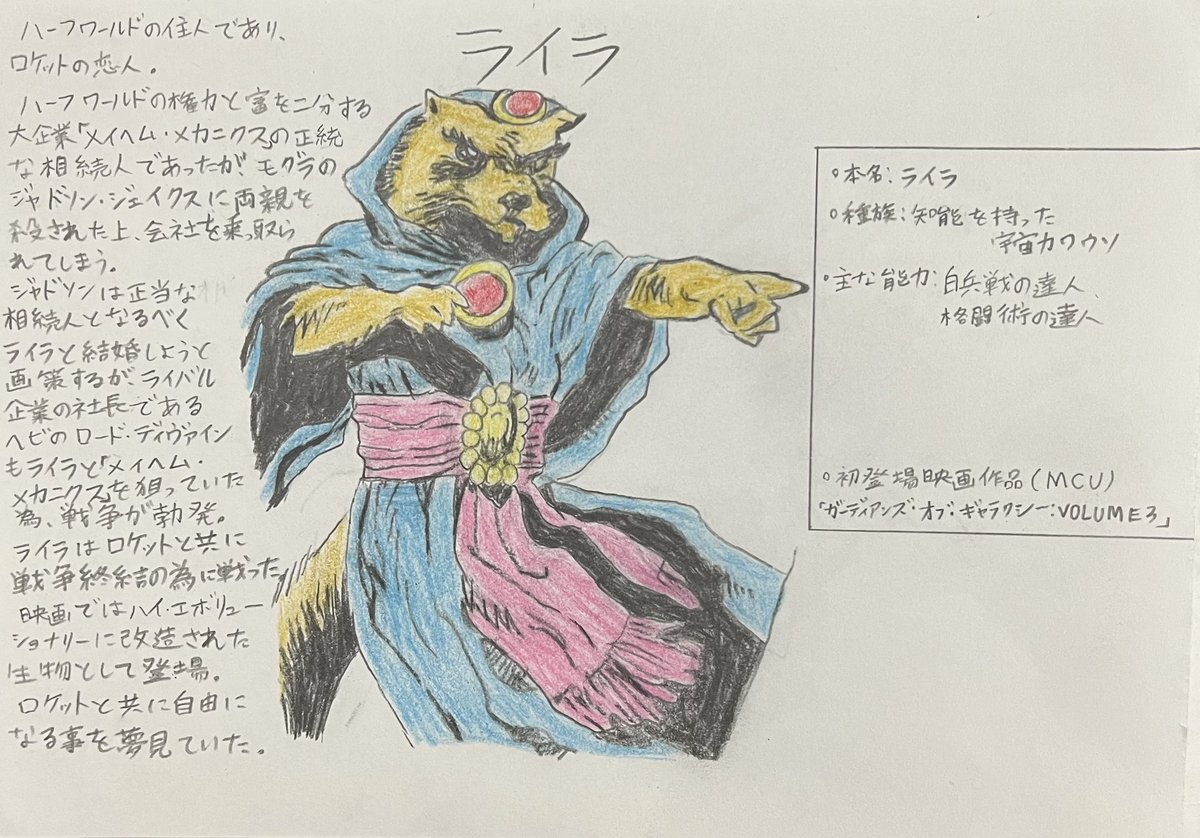 ライラ
ハーフワールドの住人であり、
ロケットの恋人。
ハーフワールドの権力と富を二分する
大企業「メイヘム・メカニクス」の正統
な相続人であったが、モグラの
ジャドソン・ジェイクスに両親を
殺された上、会社を乗っ取ら
れてしまう。
ジャドソンは正当な
相続人となるべく
ライラと結婚しようと
画策するが、ライバル
企業の社長である
ヘビのロード・ディヴァイン
もライラと「メイヘム・
メカニクス」を狙っていた
為、戦争が勃発。
ライラはロケットと共に
戦争終結の為に戦った。
映画ではハイ・エボリュー
ショナリーに改造された
生物として登場。
ロケットと共に自由に
なる事を夢見ていた。
○本名：ライラ
○種族：知能を持った
宇宙カワウソ
○主な能力：白兵戦の達人、
格闘術の達人
○初登場映画作品(MCU)
「ガーディアンズ・オブ・ギャラクシー：VOLUME3」